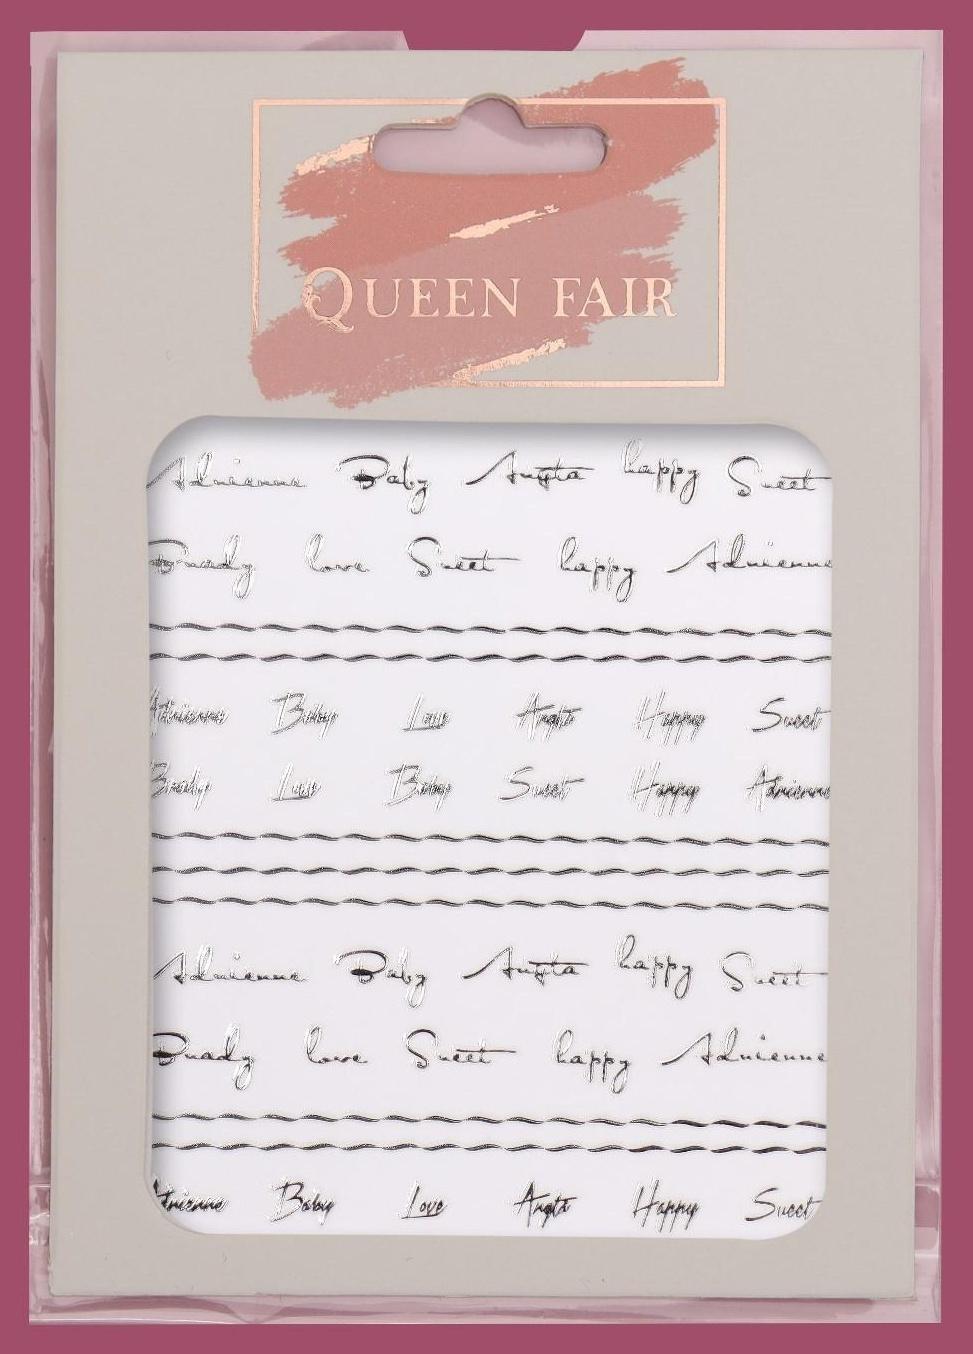 QUEEN FAIR
Adrienne Baby Angta happy Sweet
Brady love Sweet happy Adrienne
Adrienne Baby Love Angta Happy Sweet
Brady Love Baby Sweet Happy Adrienne
Adrienne Baby Angta happy Sweet
Brady love Sweet happy Adrienne
Adrienne Baby Love Angta Happy Sweet